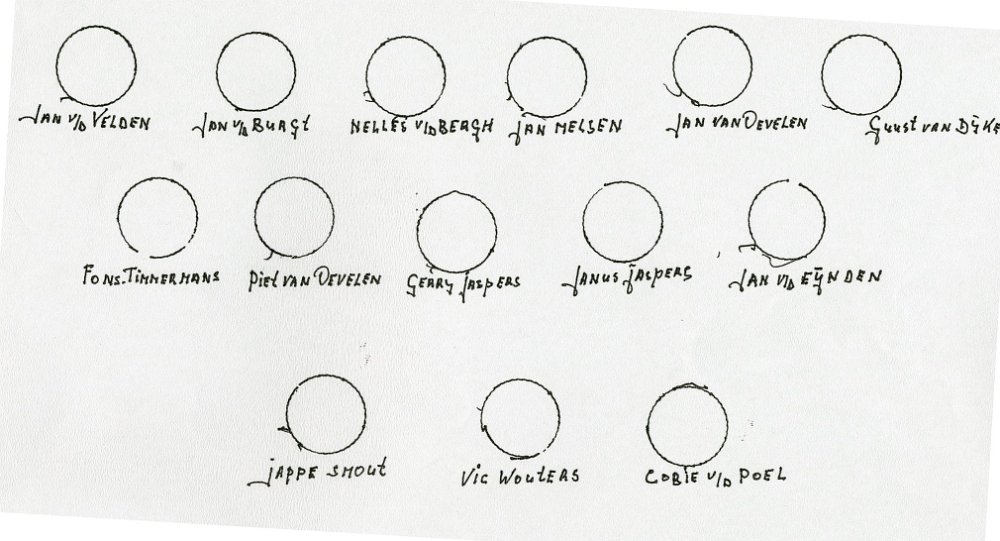 Jan v/d Velden Jan v/d Burgt Nelles v/d Bergh Jan Melsen Jan van Develen Guust van Dÿke
Fons. Timmermans Piet van Develen Gerry Jaspers Janus Jaspers Jan v/d Eÿnden
Jappe Smout Vic Wouters Cobie v/d Poel